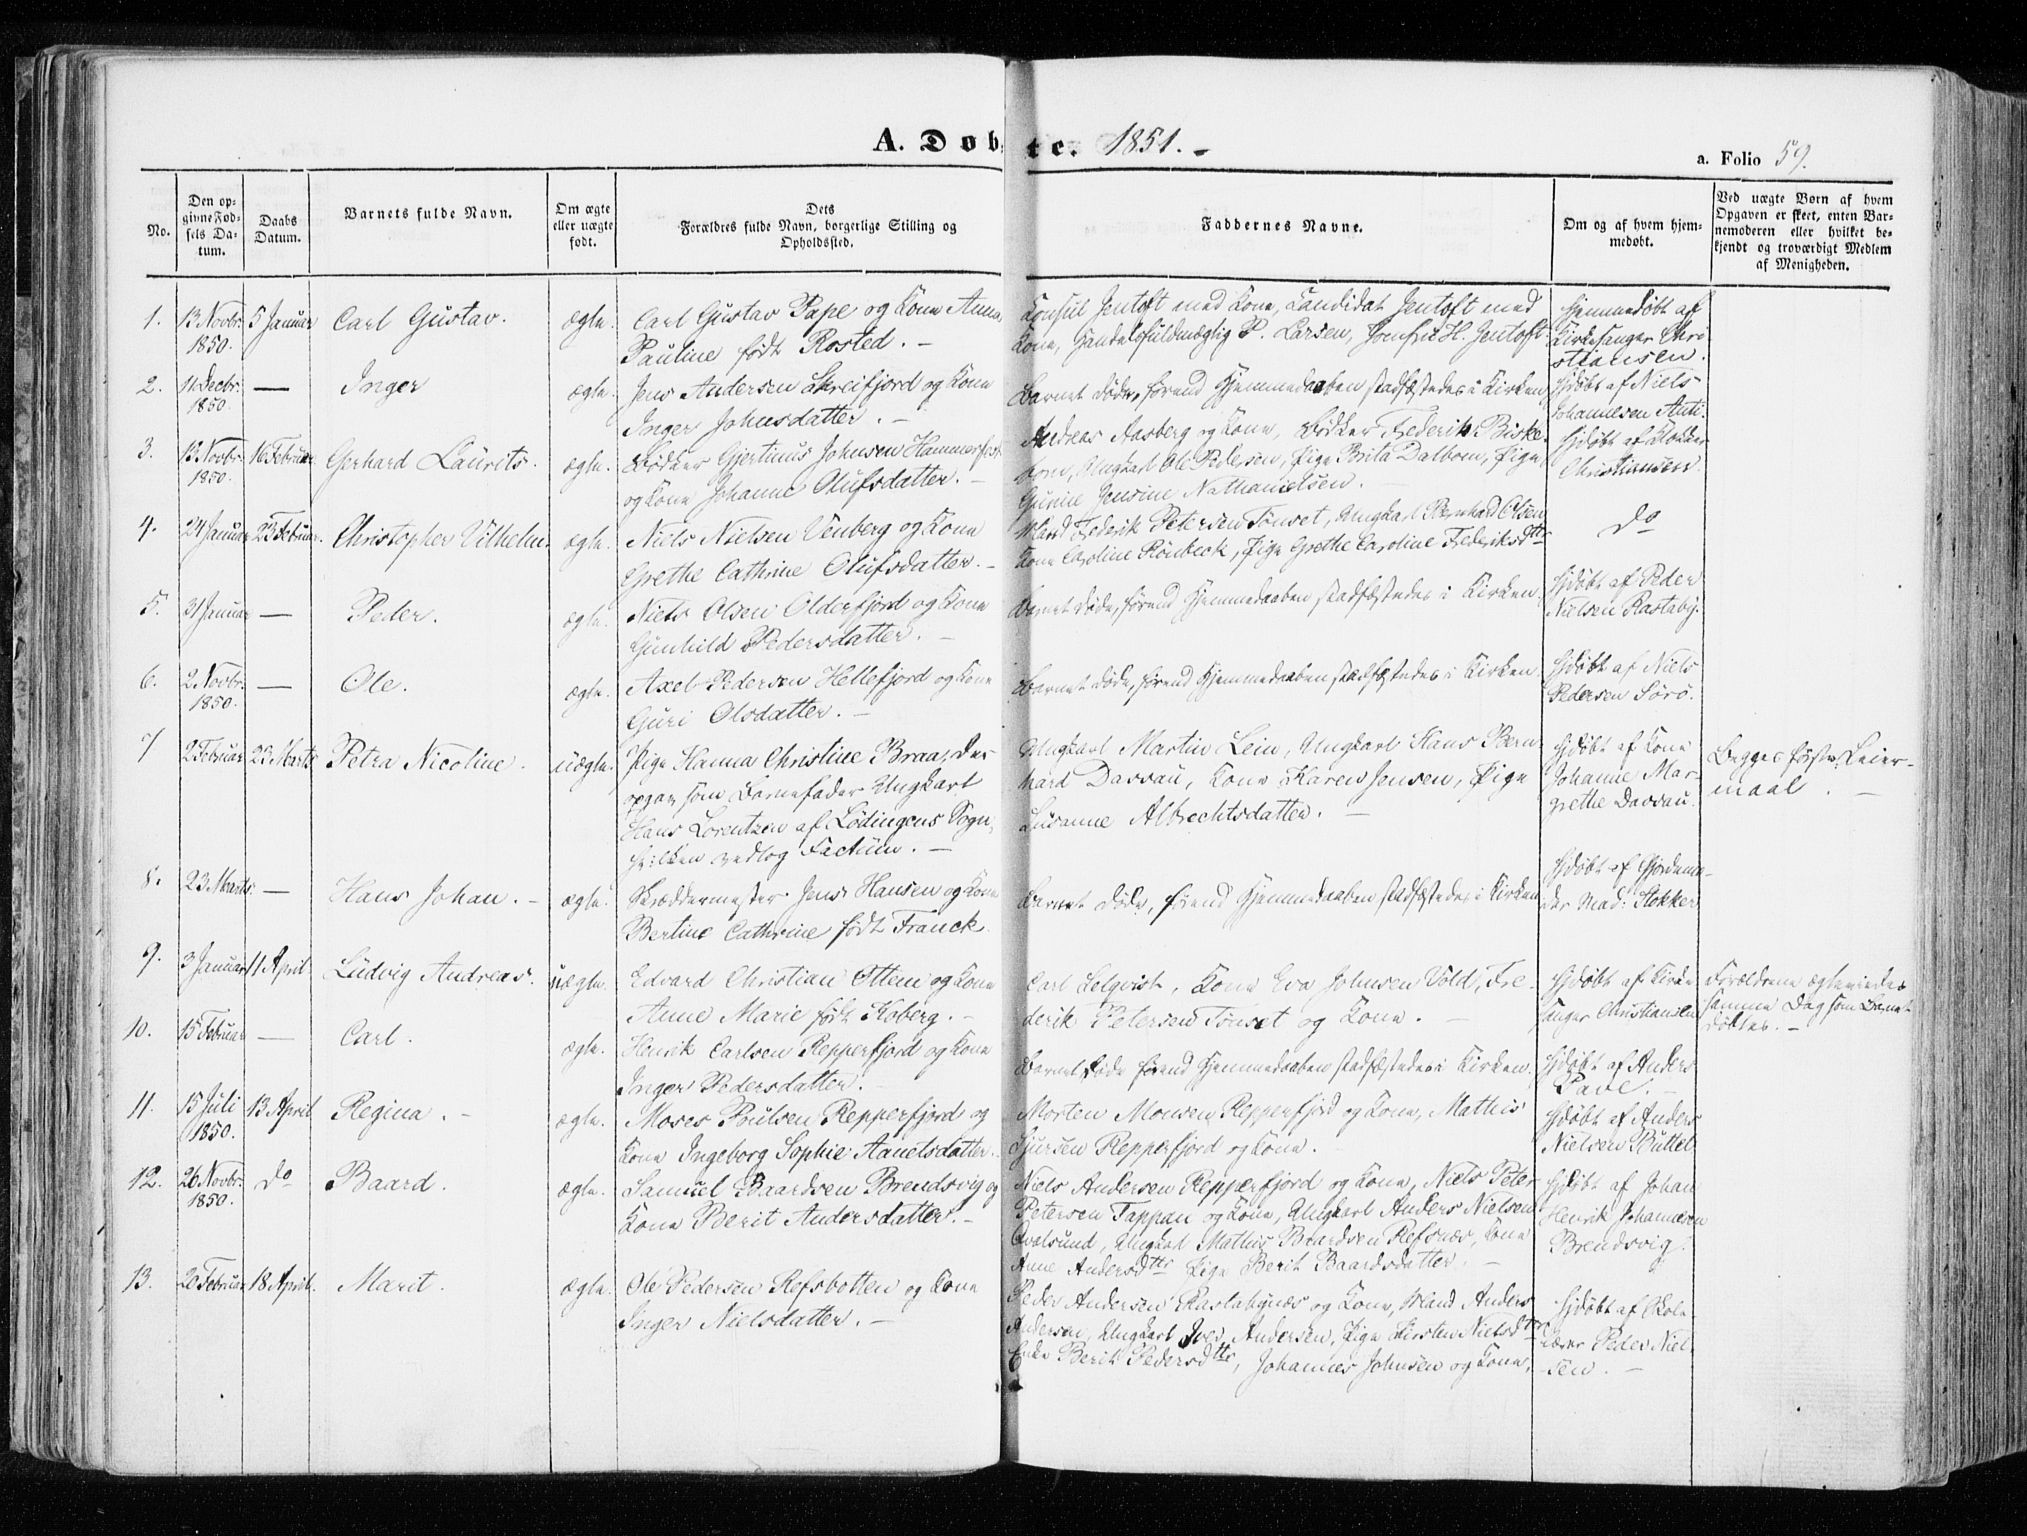 A. Døbte. 1851. -
a. Folio 59.
No.
Den op-
givne Fød-
sels Da-
tum.
Daabs
Datum.
Barnets fulde Navn.
Om ægte
eller uægte
født.
Dets
Forældres fulde Navn, borgerlige Stilling og
Opholdssted.
Faddernes Navne.
Om og af hvem hjem-
medøbt.
Ved uægte Børn af hvem
Opgaven er skeet, enten Bar-
nemoderen eller hvilket be-
kjendt og troværdigt Medlem
af Menigheden.
1. 13 Novbr. 1850. 5 Januar Carl Gustav. ægte.
Carl Gustav Pape og Kone Anna
Pauline født Rosted. -
Konsul Jentoft med Kone, Candidat Jentoft med
Kone, Handelsfuldmægtig P. Larsen, Jomfru H. Jentoft.
Hjemmedøbt af
Kirkesanger Chri-
stiansen.
2. 11 Decbr. 1850. — Inger ægte.
Jens Andersen Skreifjord og Kone
Inger Johnsdatter. -
Barnet døde, førend Hjemmedaaben stadfæstedes i Kirken
Hjdøbt af Niels
Johannesen Anti.
3. 12 Novbr. 1850. 16 Februar Gerhard Laurits. ægte.
Bødker Gjertinus Johnsen Hammerfest
og Kone Johanne Olufsdatter. -
Andreas Aasberg og Kone, Bødker Frederik Biske-
born, Ungkarl Ole Pedersen, Pige Brita Dalbom, Pige
Gurine Jensine Nathanielsen. -
Hjdøbt af Klokker
Christiansen.
4. 24 Januar 23 Februar. Christopher Vilhelm. ægte.
Niels Nielsen Venberg og Kone
Grethe Cathrine Olufsdatter. -
Mand Frederik Petersen Tønset, Ungkarl Bernhard Olsen
Kone Caroline Rönbeck, Pige Grethe Caroline Frederiksdtr
do
5. 31 Januar — Peder. ægte.
Niels Olsen Olderfjord og Kone
Gunhild Pedersdatter. -
Barnet døde, førend Hjemmedaaben stadfæstedes i Kirken
Hjdøbt af Peder
Nielsen Rastaby.
6. 2 Novbr. 1850. — Ole. ægte.
Axel Pedersen Hellefjord og Kone
Guri Olsdatter. -
Barnet døde, førend Hjemmedaaben stadfæstedes i Kirken
Hjdøbt af Niels
Pedersen Sørø.
7 2 Februar 23 Marts Petra Nicoline. uægte.
Pige Hanna Christine Braa, der
opgav som Barnefader Ungkarl
Hans Lorentzen af Lödingens Sogn,
hvilken vedtog Factum. -
Ungkarl Martin Lein, Ungkarl Hans Bern-
hard Davsau, Kone Karen Jensen, Pige
Susanne Albrechtsdatter. -
Hjdøbt af Kone
Johanne Mar-
grethe Davsau.
Begges første Leier-
maal. -
8. 23 Marts. — Hans Johan. - ægte.
Skræddermester Jens Hansen og Kone
Bertine Cathrine født Franck.
Barnet døde, førend Hjemmedaaben stadfæstedes i Kirken
Hjdøbt af Gjordemo-
der Mad: Stokker
9. 3 Januar 11 April. Ludvig Andreas. uægte.
Edvard Christian Ottem og Kone
Anne Marie født Koberg. -
Carl Selqvist, Kone Eva Johnsen Vold, Fre-
derik Petersen Tønset og Kone. -
Hjdøbt af Kirke-
sanger Christiansen
Forældrene ægteviedes
samme Dag som Barnet
døbtes. -
10. 15 Februar — Carl. ægte.
Henrik Carlsen Repperfjord og Kone
Inger Pedersdatter.
Barnet døde førend Hjemmedaaben stadfæstedes i Kirken.
Hjdøbt af Anders
11. 15 Juli 1850. 13 April Regina. - ægte.
Moses Poulsen Repperfjord og
Kone Ingeborg Sophie Aanetsdatter.
Morten Monsen Repperfjord og Kone, Mathis
Sjursen Repperfjord og Kone.
Hjdøbt af Anders
Nielsen Buttel
12. 26 Novbr. 1850. do Baard. ægte.
Samuel Baardsen Brendsvig og
Kone Berit Andersdatter. -
Niels Andersen Repperfjord og Kone, Niels Peter
Petersen Tappan og Kone, Ungkarl Anders Nielsen
Qvalsund, Ungkarl Mathis Baardsen Refsnæs, Kone
Anne Andersdtr Pige Berit Baardsdatter. -
Hjdøbt af Johan
Henrik Johannesen
Brendsvig.
13. 20 Februar 18 April. Marit. ægte.
Ole Pedersen Refsbotten og Kone
Inger Nielsdatter. -
Peder Andersen Rastabynæs og Kone, Mand Anders
Andersen, Ungkarl Iver Andersen, Pige Kirsten Nielsdtr
Enke Berit Pedersdtr, Johannes Johnsen og Kone,
Hjdøbt af Skole-
lærer Peder Niel-
sen. -